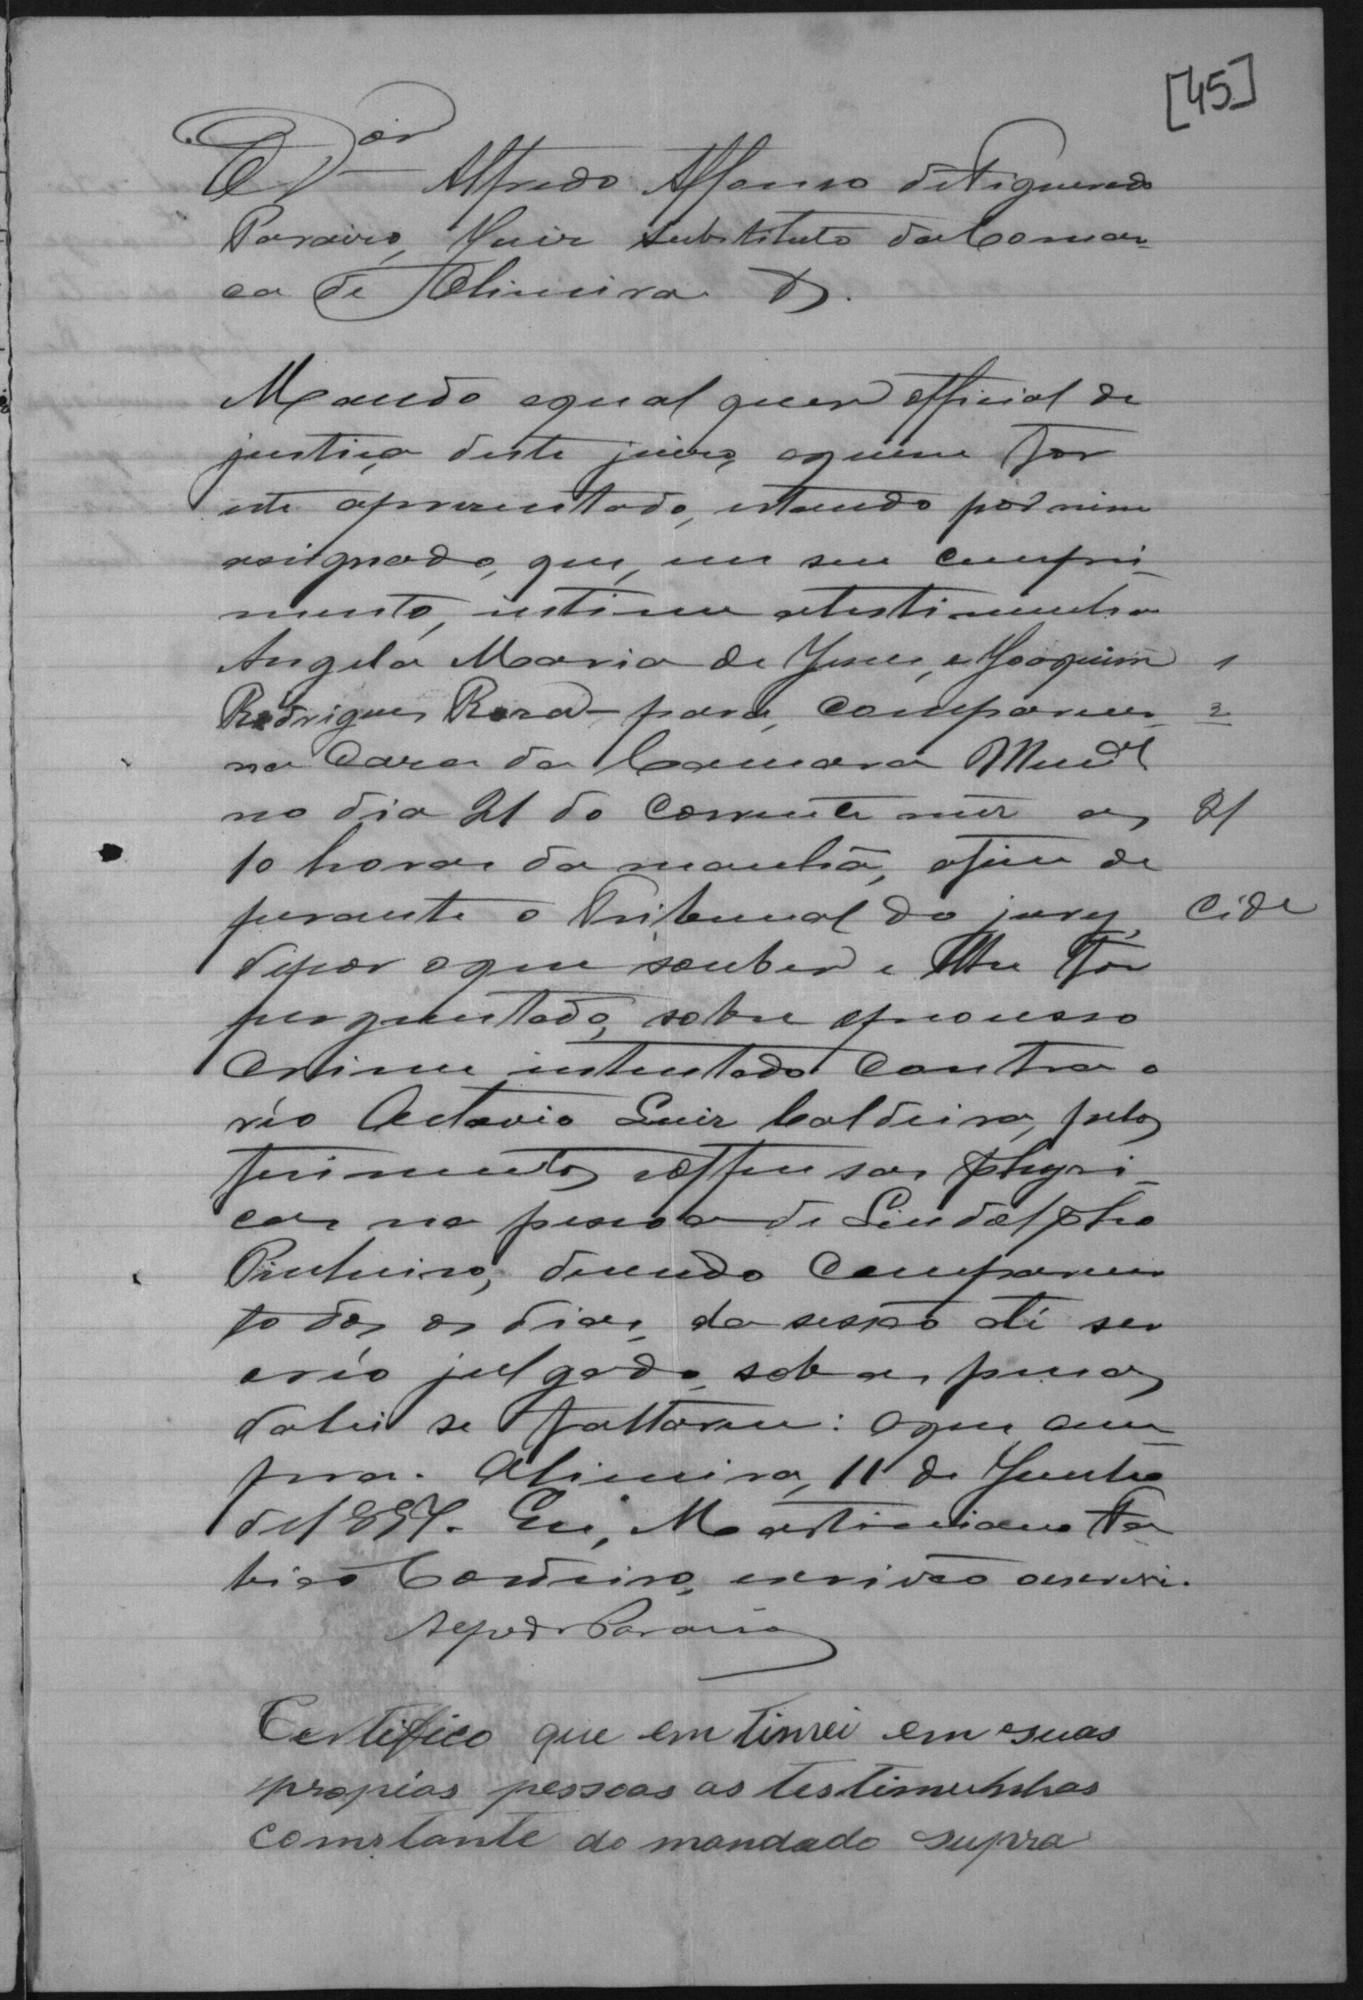 [45]
O Dor Alfredo Affonso de Figueredo
Paraizo, Juiz substituto da Comar-
ca de Oliveira &.
Mando aqual quer official de
justiça deste juizo, aquem for
este aprezentado, estando por mim
asignado, que, em seu cumpri-
mento, intime atestimunha
Angela Maria de Jesus, e Joaquim 1
Rodrigues Rosa - para, comparecer 2
na Caza da Camara Munal
no dia 21 do corrente mez as 21
10 horas da manhã, afim de
perante o Tribunal do jury, Cide
depor oque souber e lhe for
perguntado, sobre oprocesso
crime intentado contra o
réo Octavio Luiz Caldeira, pelos
ferimentos eoffensas physi-
cas na pessoa de Lindolpho
Pinheiro, devendo comparecer
todos os dias da sessão até ser
oréo julgado, sob as penas
dalei se faltarem: oque cum-
pra. Oliveira, 11 de Junho
de 1897. Eu, Martiniano Fa
bião Cordeiro, escrivão oescrevi.
Alfredo Paraizo
Certifico que em timei em suas
propias pessoas as testimunhas
comstante do mandado supra